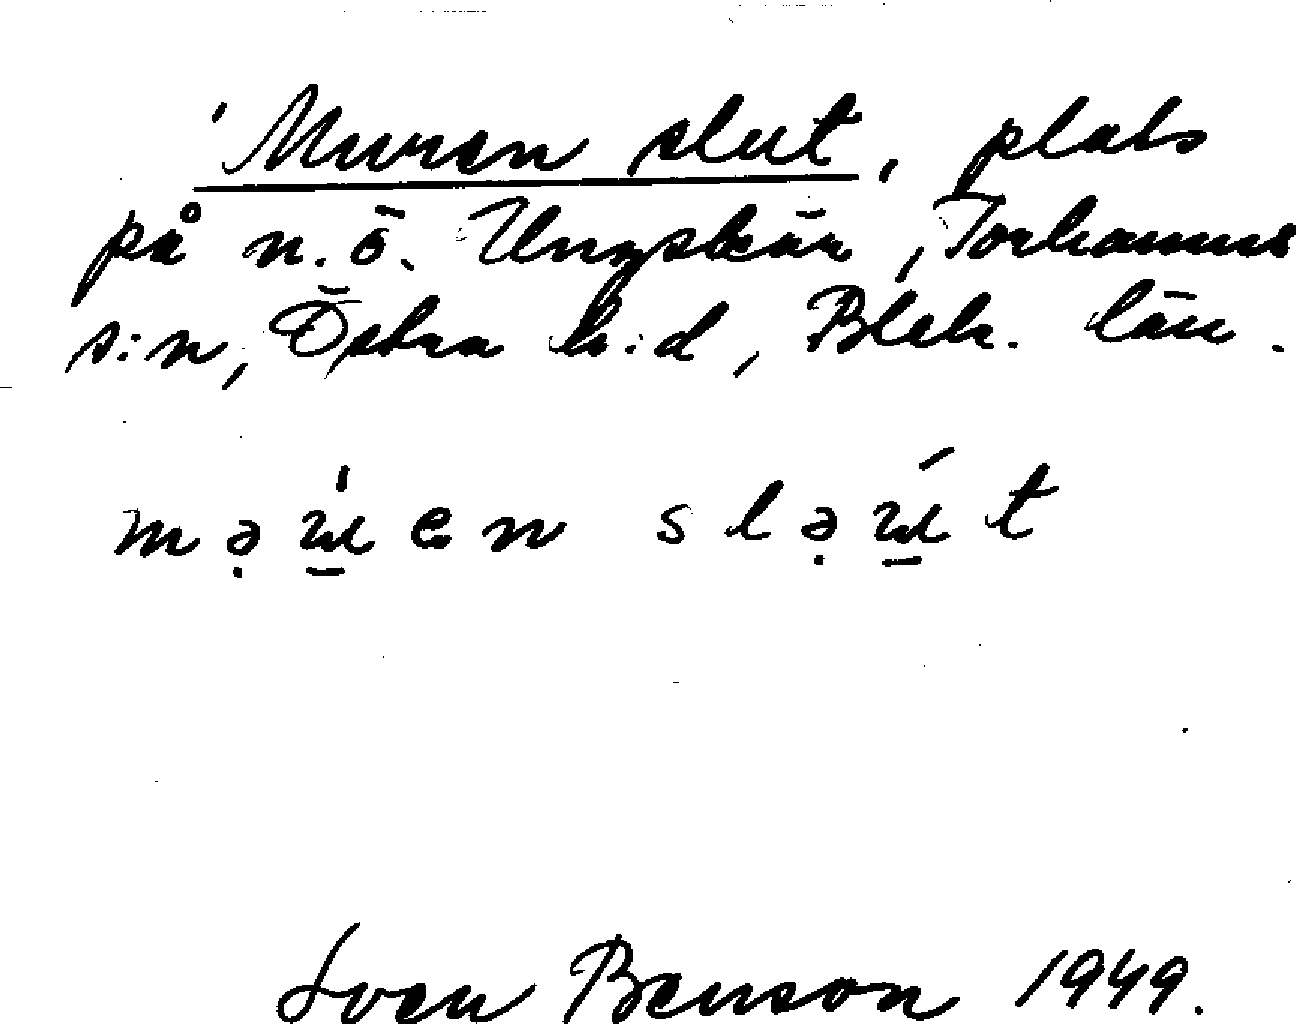 'Muren slut, plats
på n. ö. Ungskär, Torhamns
s:n, Östra h:d, Blek. län.
Sven Benson 1949.